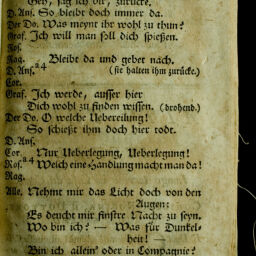 Geh, sag ich dir, zurücke.
D. Anf. So bleibt doch immer da.
Der Do. Was meynt ihr wohl zu thun?
Graf. Ich will man soll dich spießen.
Ros.
Rag. Bleibt da und gebet nach.
D. Anf. à 4 (sie halten ihm zurücke.)
Cor.
Graf. Ich werde, ausser hier
Dich wohl zu finden wissen. (drohend.)
Der Do. O welche Uebereilung!
So schießt ihm doch hier todt.
D. Anf.
Cor. Nur Ueberlegung, Ueberlegung!
Ros. à 4 Welch eine Handlung macht man da!
Rag.
Alle. Nehmt mir das Licht doch von den
Augen:
Es deucht mir finstre Nacht zu seyn.
Wo bin ich? — Was für Dunkel-
heit! —
Bin ich allein oder in Compagnie?